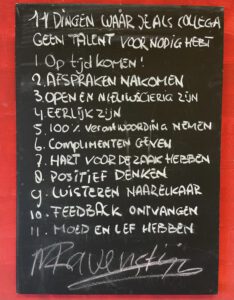 11 DINGEN WAAR JE ALS COLLEGA
GEEN TALENT VOOR NODIG HEBT
1. Op tijd komen!
2. AFSPRAKEN NAKOMEN
3. OPEN EN NIEUWSCIERIG ZIJN
4. EERLIJK ZIJN
5. 100% verantwoording NEMEN
6. COMPLIMENTEN GEVEN
7. HART VOOR DE ZAAK HEBBEN
8. POSITIEF DENKEN
9. LUISTEREN NAAR ELKAAR
10. FEEDBACK ONTVANGEN
11. MOED EN LEF HEBBEN